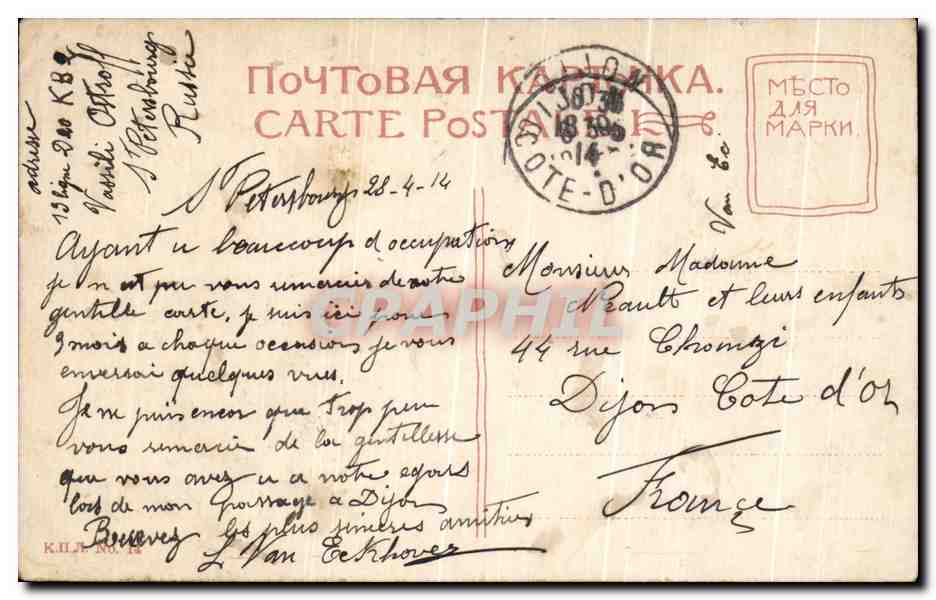 ПОЧТОВАЯ КАРТИЧКА.
CARTE POSTALE
МѢСТО
ДЛЯ
МАРКИ.
DIJON
18
14
COTE-D'OR
adresse
13 ligne 2
Vassili Ostroff
St Petersbourg
Russie
Van Ec
St Petersbourg 28-4-14
Ayant u beaucoup d occupations
je n ai pu vous remercier de votre
gentille carte, je suis ici pour
3 mois a chaque occasions je vous
enverrai quelques vues.
Je ne puis encor que trop peu
vous remercie de la gentillesse
que vous avez u a notre egars
lors de mon passage a Dijon
Recevez les plus sinceres amities
L Van Eckhovez
Monsieur Madame
Neault et leurs enfants
44 rue
Dijon Cote d'Or
France
К.П.Л. No. 14
CPAPHIL